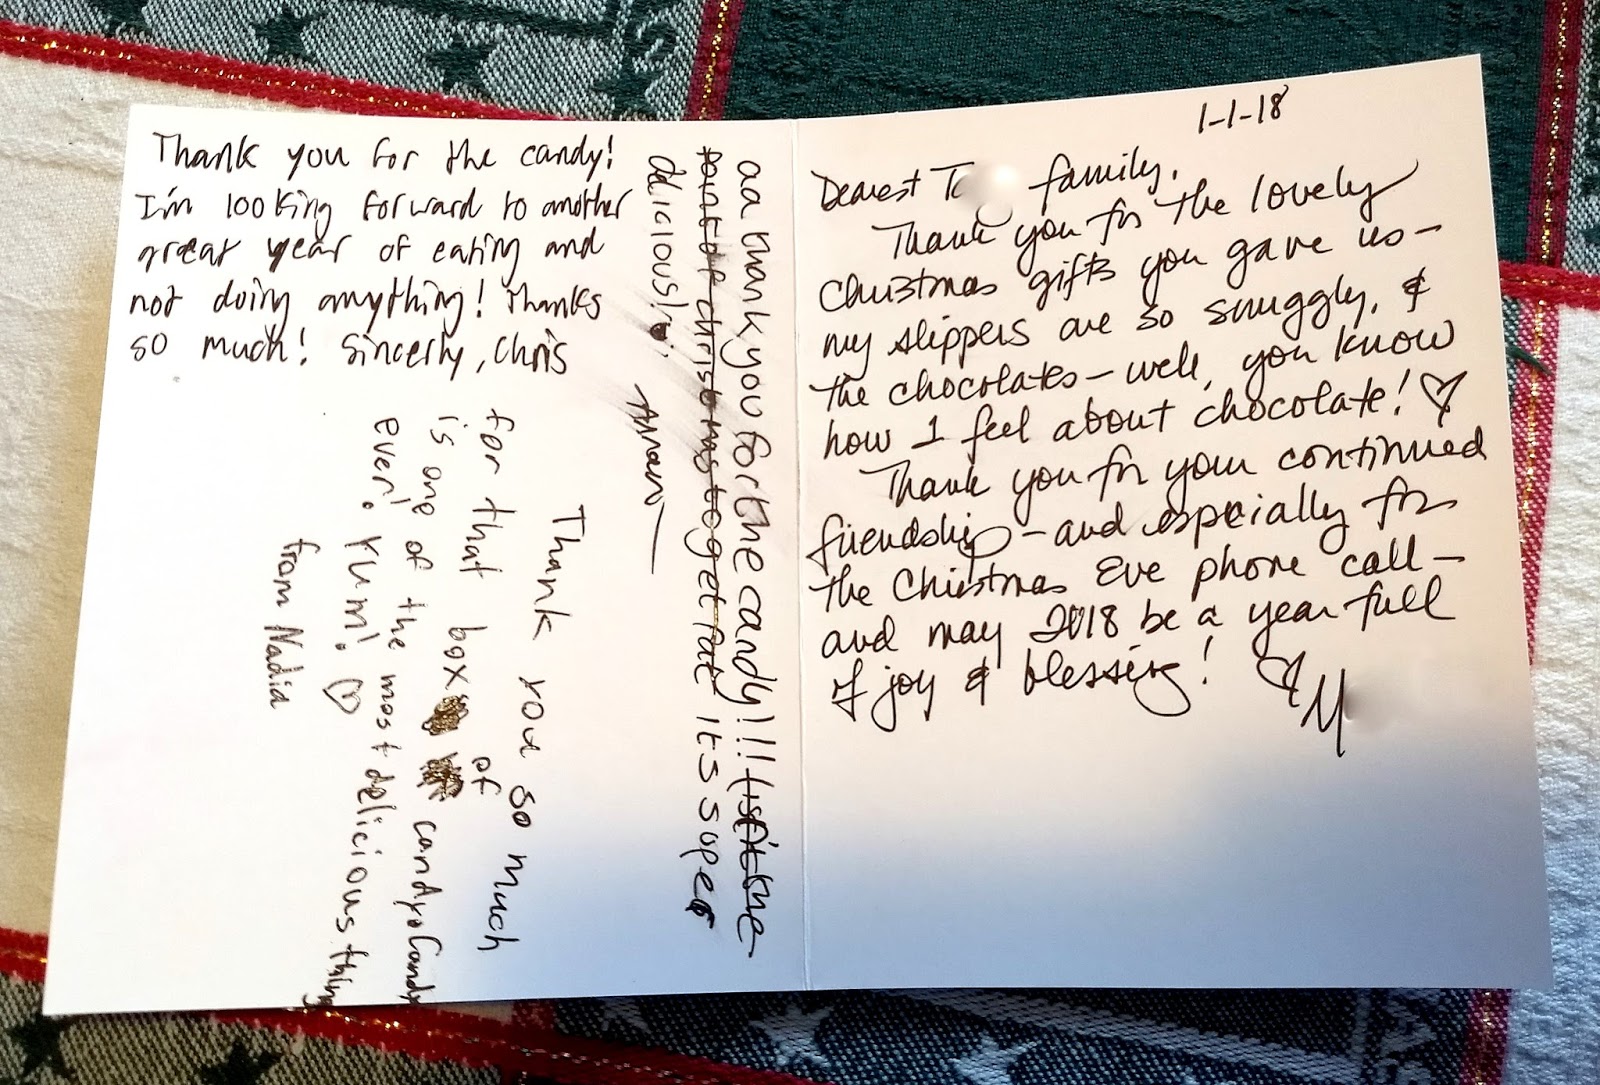 Thank you for the candy!
I'm looking forward to another
great year of eating and
not doing anything! Thanks
so much! Sincerly, Chris
aa thank you for the candy!!! isn't the
point of christmas to get fat its super
dilicious!
Thank you so much
for that box of
candy. Candy
is one of the most delicious thing
ever! Yum! ♡
from Nadia
1-1-18
Dearest T family,
Thank you for the lovely
Christmas gifts you gave us-
my slippers are so snuggly, &
the chocolates - well, you know
how I feel about chocolate! ♡
Thank you for your continued
friendship - and especially for
the Christmas Eve phone call -
and may 2018 be a year full
of joy & blessing!
♡ M